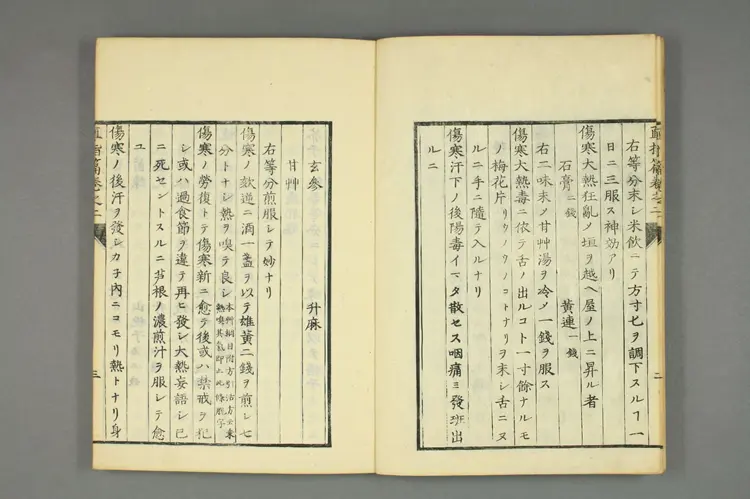 直指篇卷之二
右等分末シ米飲ニテ方寸匕ヲ調下スル一
日ニ三服ス神効アリ
傷寒大熱狂亂ノ垣ヲ越ヘ屋ノ上ニ昇ル者
石膏二錢 黄連一錢
右二味末ノ甘艸湯ヲ冷メ一錢ヲ服ス
傷寒大熱毒ニ依テ舌ノ出ルコト一寸餘ナルモ
ノ梅花片リウノウノコトナリヲ末シ舌ニヌ
ルニ手ニ隨テ入ルナリ
傷寒汗下ノ後陽毒イマタ散セス咽痛ヨ發班出
ルニ
二
玄参 升麻
甘艸
右等分煎服シテ妙ナリ
傷寒ノ欬逆ニ酒一盞ヲ以テ雄黄二錢ヲ煎シ七
分トナシ熱ヲ嗅テ良シ
傷寒ノ勞復トテ傷寒新ニ愈テ後或ハ禁戒ヲ犯
シ或ハ過食節ヲ違テ再ヒ發シ大熱妄語シ已
ニ死セントスルニ芦根ノ濃煎汁ヲ服シテ愈
ユ
傷寒ノ後汗ヲ發シカチ内ニコモリ熱トナリ身
直指篇卷之二
三